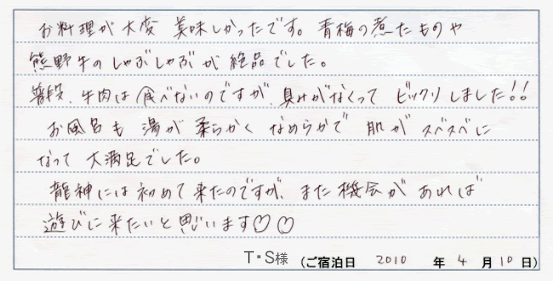 お料理が大変 美味しかったです。青梅の煮たものや
熊野牛のしゃぶしゃぶが絶品でした。
普段、牛肉は食べないのですが、臭みがなくって ビックリしました!!
お風呂も 湯が柔らかく なめらかで 肌がスベスベに
なって 大満足でした。
龍神には初めて来たのですが、また機会があれば
遊びに来たいと思います♡♡
T・S様 (ご宿泊日 2010 年 4 月 10 日)